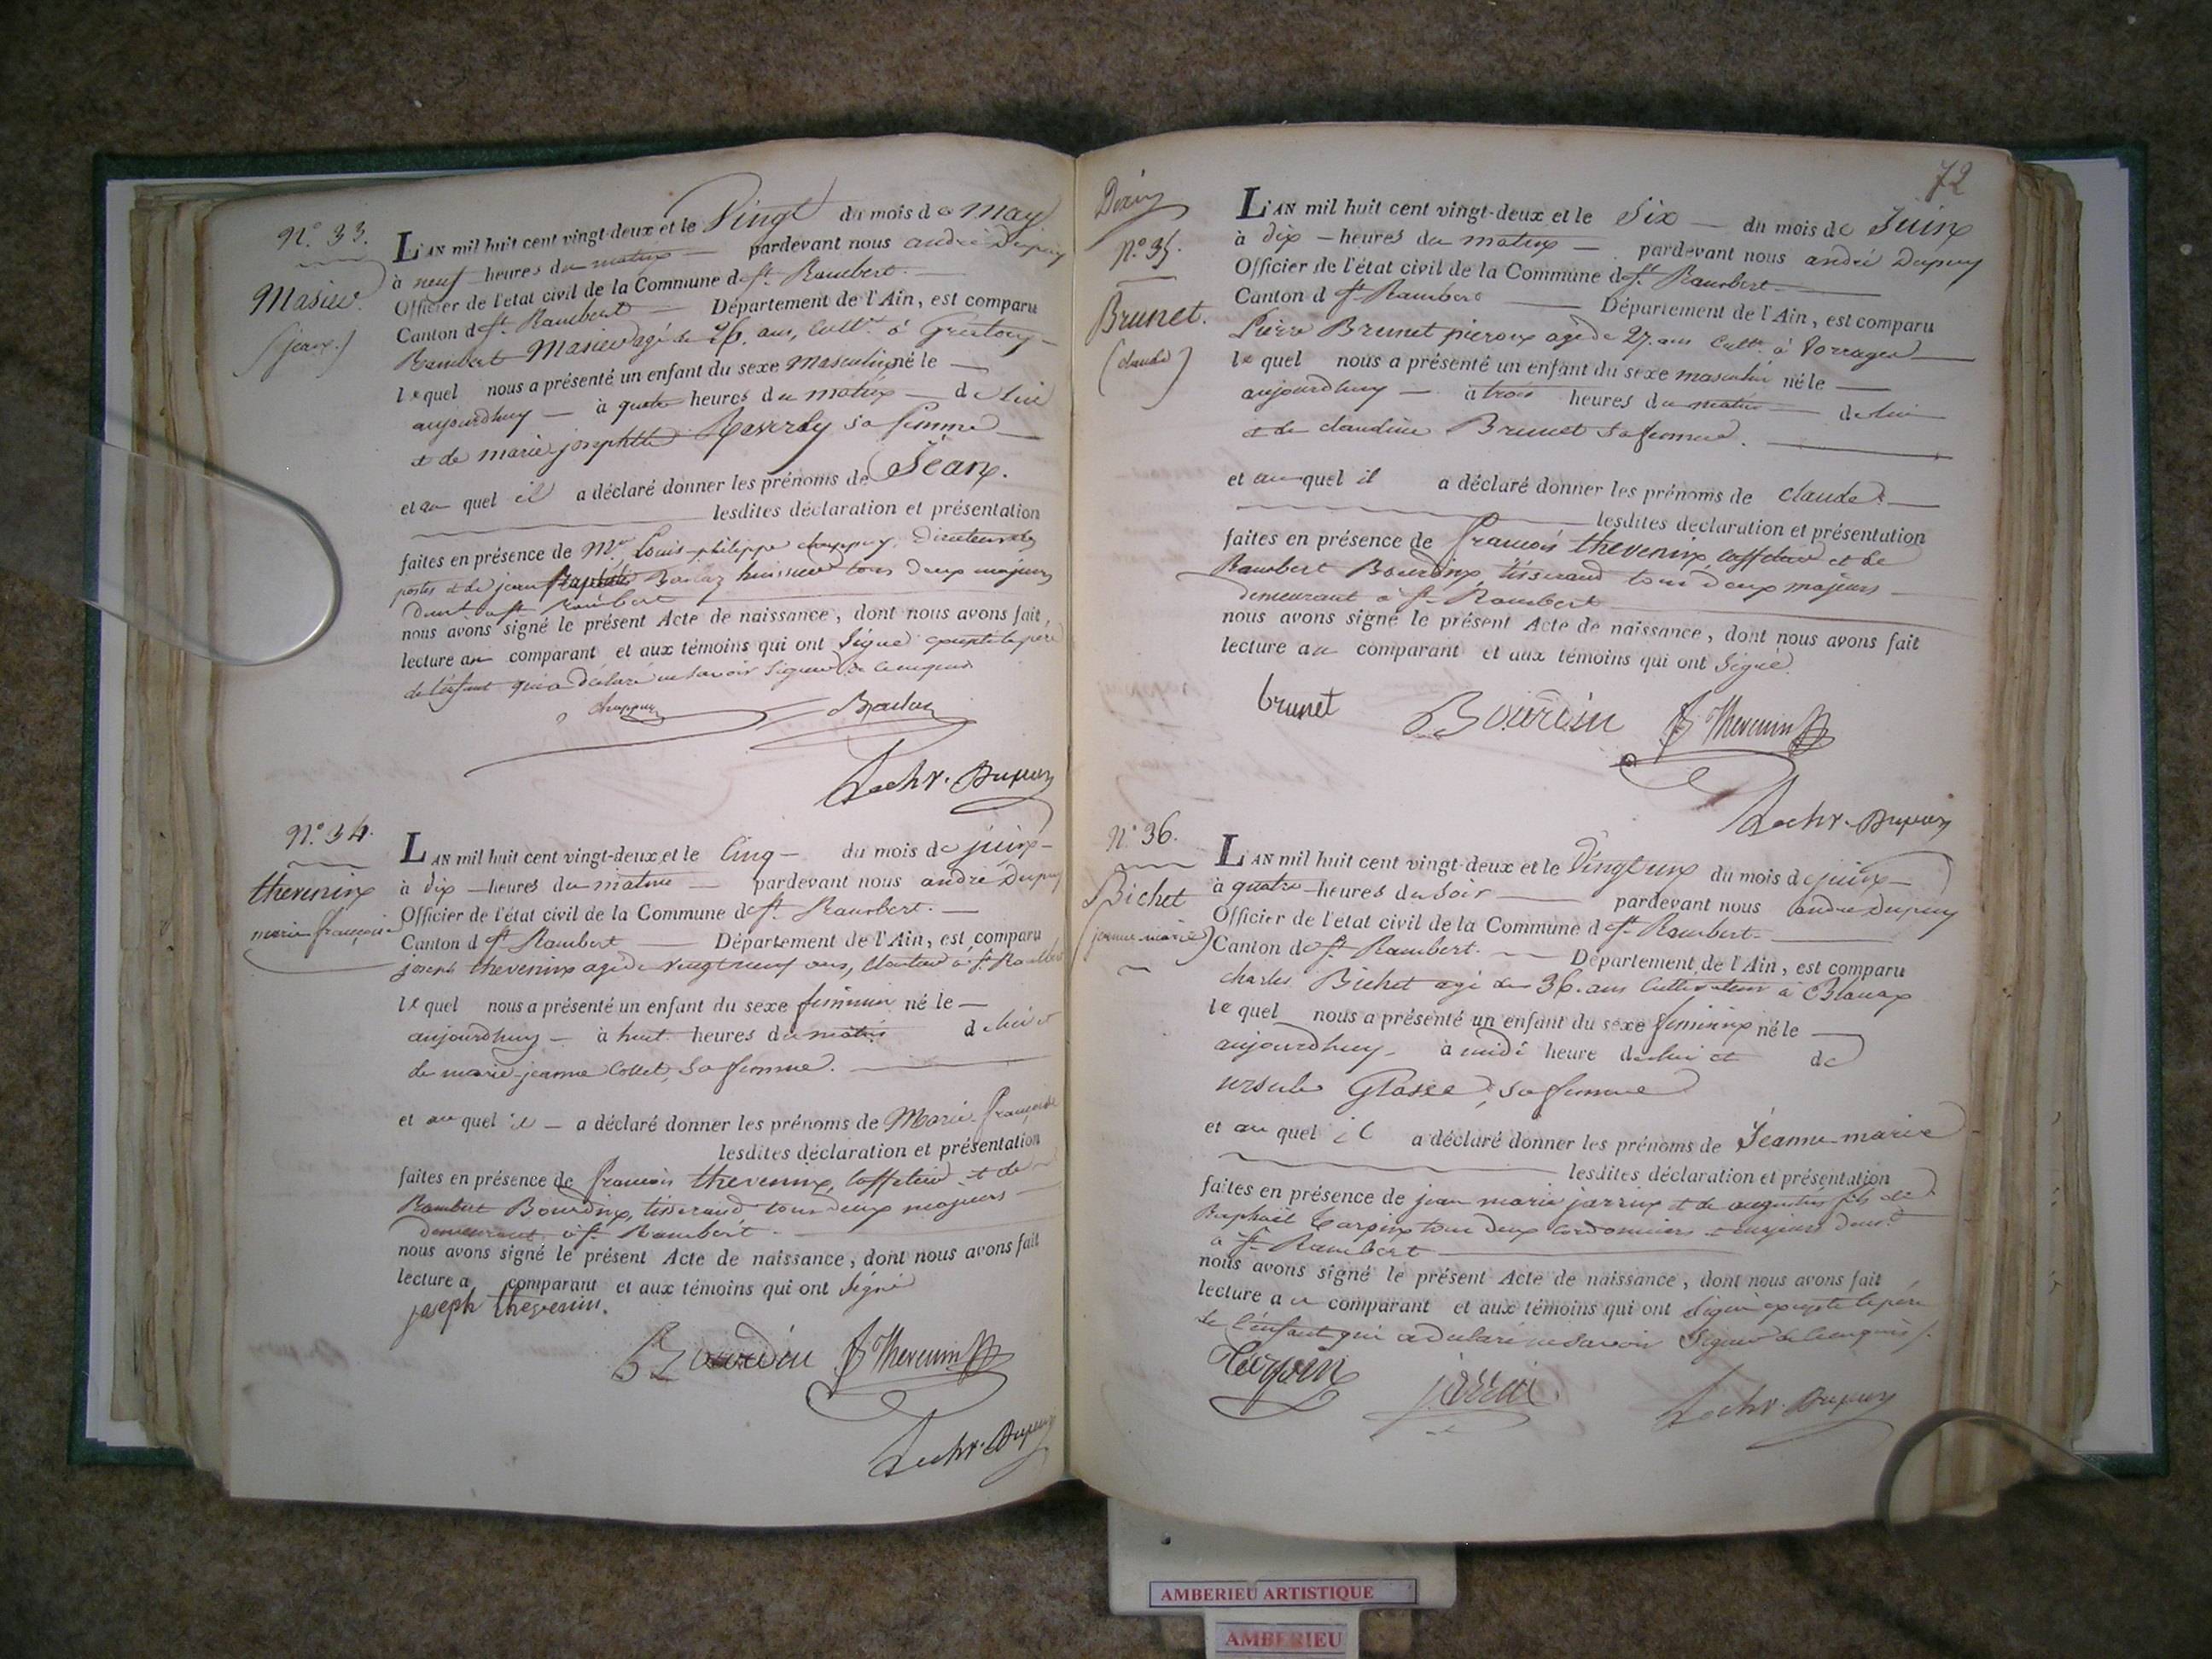 N.º 33.
Masieu
(jean.)
L'AN mil huit cent vingt-deux et le Vingt du mois de May
à neuf heures du matin pardevant nous andré Dupuy
Officier de l'état civil de la Commune de St. Rambert.
Canton de St. Rambert Département de l'Ain, est comparu
Rambert Masieu agé de 26. ans, Cultr. à
lequel nous a présenté un enfant du sexe Masculin né le
aujourdhuy à quatre heures du matin de lui
et de marie josephte Reverdy sa femme
et au quel il a déclaré donner les prénoms de Jean.
lesdites déclaration et présentation
faites en présence de Mr. Louis-philippe chappuy, Directeur des
postes et de jean huissier tous deux majeurs
demt. à St. Rambert
nous avons signé le présent Acte de naissance, dont nous avons fait
lecture au comparant et aux témoins qui ont Signé excepté le père
de l'enfant qui a déclaré ne savoir Signer de ce enquis
chappuy
Dupuy
N.º 34.
thevenin
marie françoise
L'AN mil huit cent vingt-deux et le Cinq du mois de juin
à dix heures du matin pardevant nous andré Dupuy
Officier de l'état civil de la Commune de St. Rambert.
Canton de St. Rambert Département de l'Ain, est comparu
joseph thevenin agé de vingt neuf ans, à St. Rambert
lequel nous a présenté un enfant du sexe feminin né le
aujourdhuy à huit heures du matin de lui et
de marie jeanne Collet, Sa femme.
et au quel il a déclaré donner les prénoms de Marie françoise
lesdites déclaration et présentation
faites en présence de françois thevenin, Caffetier et de
Rambert Bourdin, tisserand tous deux majeurs
demeurant à St. Rambert.
nous avons signé le présent Acte de naissance, dont nous avons fait
lecture a comparant et aux témoins qui ont Signé
joseph thevenin.
Bourdin
F Thevenin
Dupuy
72
N.º 35.
Brunet.
(claude)
L'AN mil huit cent vingt-deux et le Six du mois de Juin
à dix heures du matin pardevant nous andré Dupuy
Officier de l'état civil de la Commune de St. Rambert
Canton d St. Rambert Département de l'Ain, est comparu
Pierre Brunet agé de 27. ans Cultr. à
lequel nous a présenté un enfant du sexe masculin né le
aujourdhuy à trois heures du matin de lui
et de claudine Brunet Sa femme.
et au quel il a déclaré donner les prénoms de claude.
lesdites déclaration et présentation
faites en présence de françois thevenin, Caffetier et de
Rambert Bourdin, tisserand tous deux majeurs
demeurant à St. Rambert
nous avons signé le présent Acte de naissance, dont nous avons fait
lecture au comparant et aux témoins qui ont Signé
brunet
Bourdin
F Thevenin
Dupuy
N.º 36.
Bichet
(jeanne-marie)
L'AN mil huit cent vingt-deux et le Vingt un du mois de juin
à quatre heures du Soir pardevant nous andré Dupuy
Officier de l'état civil de la Commune d St. Rambert
Canton de St. Rambert. Département de l'Ain, est comparu
charles Bichet agé de 36. ans Cultivateur à Blanax
lequel nous a présenté un enfant du sexe feminin né le
aujourdhuy à midi heure de lui et de
ursule Sa femme
et au quel il a déclaré donner les prénoms de Jeanne-marie
lesdites déclaration et présentation
faites en présence de jean marie jarrin et de augustin fils de
Raphaël tous deux Cordonniers et majeurs demt.
à St. Rambert
nous avons signé le présent Acte de naissance, dont nous avons fait
lecture au comparant et aux témoins qui ont Signé excepté le père
de l'enfant qui a déclaré ne savoir Signer de ce enquis
jarrin
Dupuy
AMBERIEU ARTISTIQUE
AMBERIEU